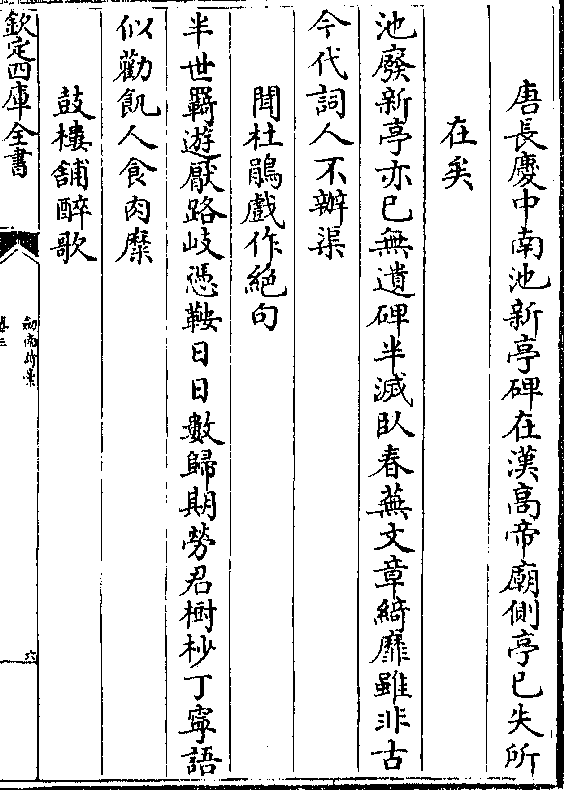 唐長慶中南池新亭碑在漢高帝廟側亭已失所
在矣
池廢新亭亦已無遺碑半滅臥春蕪文章綺靡雖非古
今代詞人不辦渠
聞杜鵑戲作絶句
半世羇遊厭路岐憑鞍日日數歸期勞君樹杪丁寧語
似勸飢人食肉糜
鼓樓舖醉歌
欽定四庫全書
劍南詩稾
卷三
六